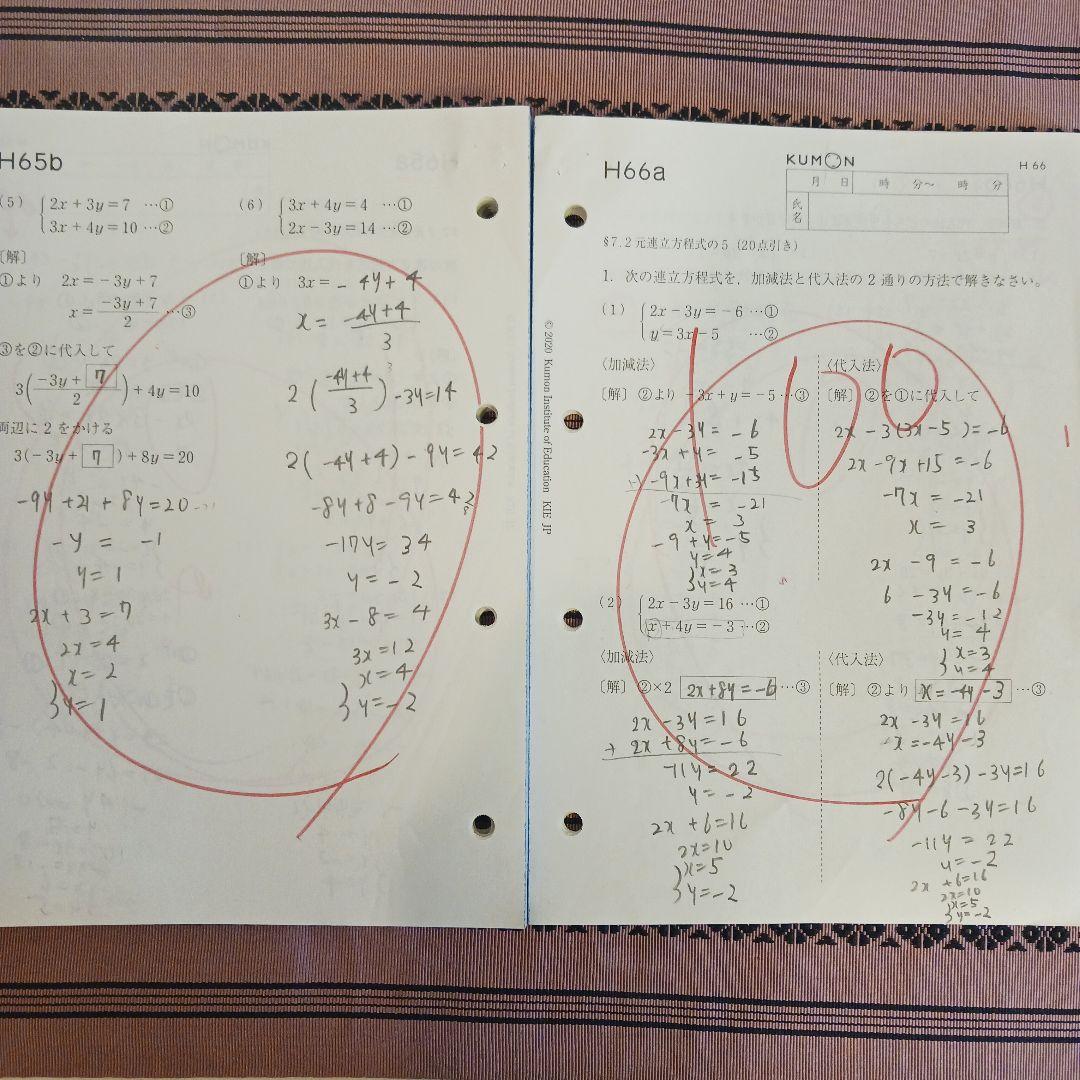 H65b
(5) { 2x+3y=7 …①
3x+4y=10 …②
〔解〕
①より 2x=-3y+7
x=(-3y+7)/2 …③
③を②に代入して
3((-3y+7)/2)+4y=10
両辺に2をかける
3(-3y+7)+8y=20
-9y+21+8y=20
-y=-1
y=1
2x+3=7
2x=4
{ x=2
y=1
(6) { 3x+4y=4 …①
2x-3y=14 …②
〔解〕
①より 3x=-4y+4
x=(-4y+4)/3
2((-4y+4)/3)-3y=14
2(-4y+4)-9y=42
-8y+8-9y=42
-17y=34
y=-2
3x-8=4
3x=12
{ x=4
y=-2
© 2020 Kumon Institute of Education KIE JP
H66a
KUMON
H 66
月 日 時 分～ 時 分
氏名
100
§7.2元連立方程式の5 (20点引き)
1. 次の連立方程式を，加減法と代入法の2通りの方法で解きなさい。
(1) { 2x-3y=-6 …①
y=3x-5 …②
〈加減法〉
〔解〕②より -3x+y=-5…③
2x-3y=-6
-3x+y=-5
+) -9x+3y=-15
-7x=-21
x=3
-9+y=-5
y=4
{ x=3
y=4
〈代入法〉
〔解〕②を①に代入して
2x-3(3x-5)=-6
2x-9x+15=-6
-7x=-21
x=3
2x-9=-6
6-3y=-6
-3y=-12
y=4
{ x=3
y=4
(2) { 2x-3y=16 …①
x+4y=-3 …②
〈加減法〉
〔解〕②×2 2x+8y=-6 …③
2x-3y=16
+ 2x+8y=-6
-11y=22
y=-2
2x+6=16
2x=10
{ x=5
y=-2
〈代入法〉
〔解〕②より x=-4y-3 …③
2x-3y=16
x=-4y-3
2(-4y-3)-3y=16
-8y-6-3y=16
-11y=22
y=-2
2x+6=16
2x=10
{ x=5
y=-2